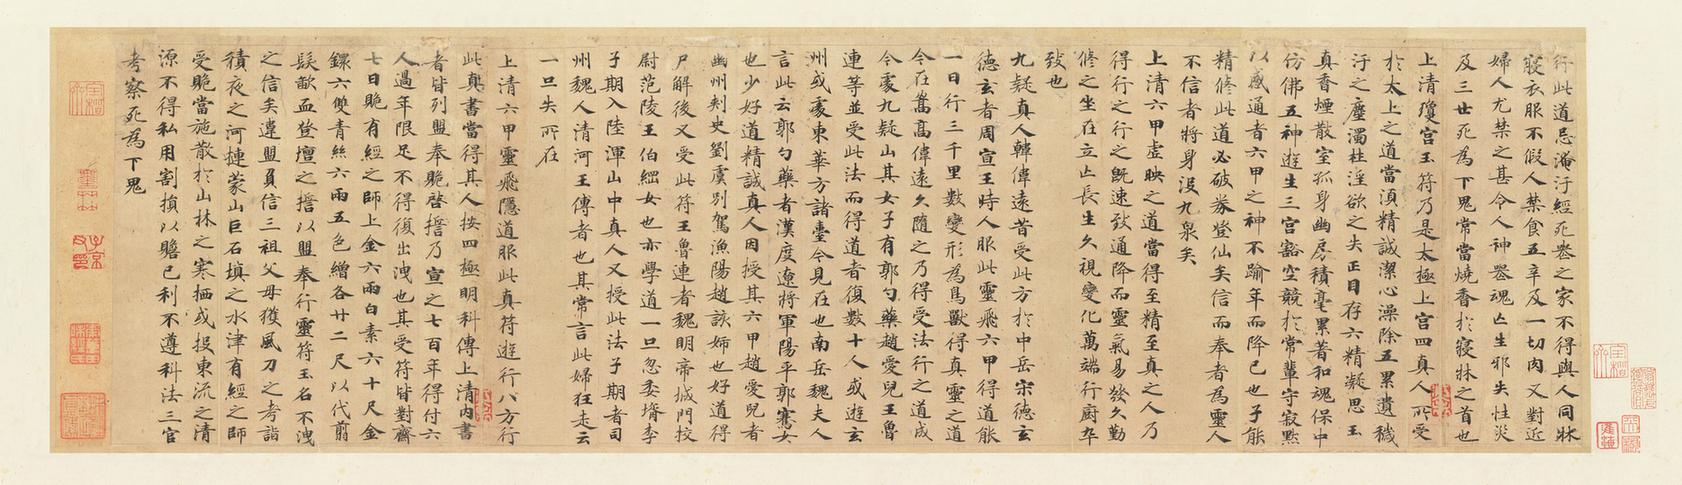 行此道忌淹汙經死喪之家不得與人同牀
寢衣服不假人禁食五辛及一切肉又對近
婦人尤禁之甚令人神喪魂亡生邪失性災
及三世死為下鬼常當燒香於寢牀之首也
上清瓊宮玉符乃是太極上宮四真人所受
於太上之道當須精誠潔心澡除五累遺穢
汙之塵濁杜淫欲之失正目存六精凝思玉
真香煙散室孤身幽房積毫累著和魂保中
仿佛五神遊生三宮豁空競於常輩守寂默
以感通者六甲之神不踰年而降已也子能
精修此道必破券登仙矣信而奉者為靈人
不信者將身沒九泉矣
上清六甲虛映之道當得至精至真之人乃
得行之行之既速致通降而靈氣易發久勤
修之坐在立亡長生久視變化萬端行廚卒
致也
九疑真人韓偉遠昔受此方於中岳宋德玄
德玄者周宣王時人服此靈飛六甲得道能
一日行三千里數變形為鳥獸得真靈之道
今在嵩高偉遠久隨之乃得受法行之道成
今處九疑山其女子有郭勺藥趙愛兒王魯
連等並受此法而得道者復數十人或遊玄
州或處東華方諸臺今見在也南岳魏夫人
言此云郭勺藥者漢度遼將軍陽平郭騫女
也少好道精誠真人因授其六甲趙愛兒者
幽州刺史劉虞別駕漁陽趙該姊也好道得
尸解後又受此符王魯連者魏明帝城門校
尉范陵王伯綱女也亦學道一旦忽委壻李
子期入陸渾山中真人又授此法子期者司
州魏人清河王傅者也其常言此婦狂走云
一旦失所在
上清六甲靈飛隱道服此真符遊行八方行
此真書當得其人按四極明科傳上清內書
者皆列盟奉貺啓擔乃宣之七百年得付六
人過年限足不得復出洩也其受符皆對齋
七日貺有經之師上金六兩白素六十尺金
鐶六雙青絲六兩五色繒各廿二尺以代翦
髮歃血登壇之擔以盟奉行靈符玉名不洩
之信矣違盟負信三祖父母獲風刀之考詣
積夜之河摙蒙山巨石填之水津有經之師
受貺當施散於山林之寒栖或投東流之清
源不得私用割損以贍己利不遵科法三官
考察死為下鬼